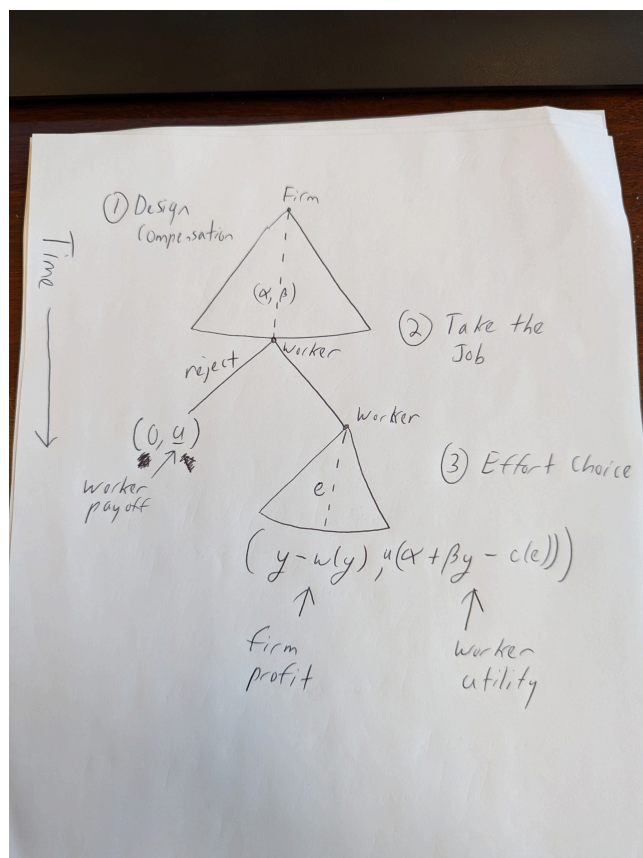 Firm
① Design
Compensation
Time
(α, β)
② Take the
Job
reject
Worker
Worker
(0, u̲)
worker
payoff
③ Effort Choice
e
(y - w(y), u(α + βy - c(e)))
firm
profit
worker
utility